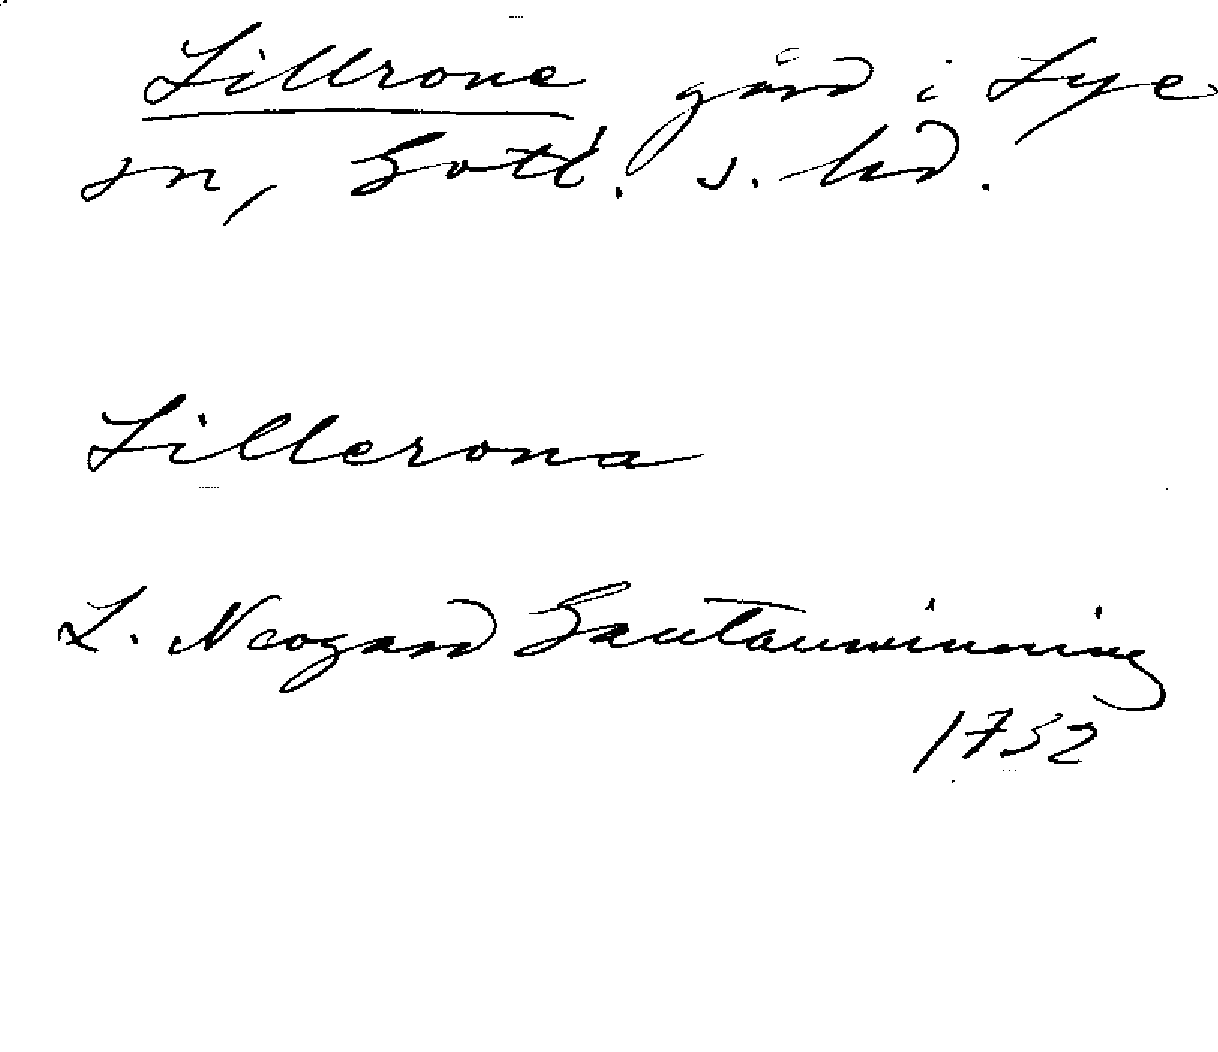 Lillrone gård i Lye
sn, Gotl. s. hd.
Lillerona
L. Neogard Gautauminning
1732